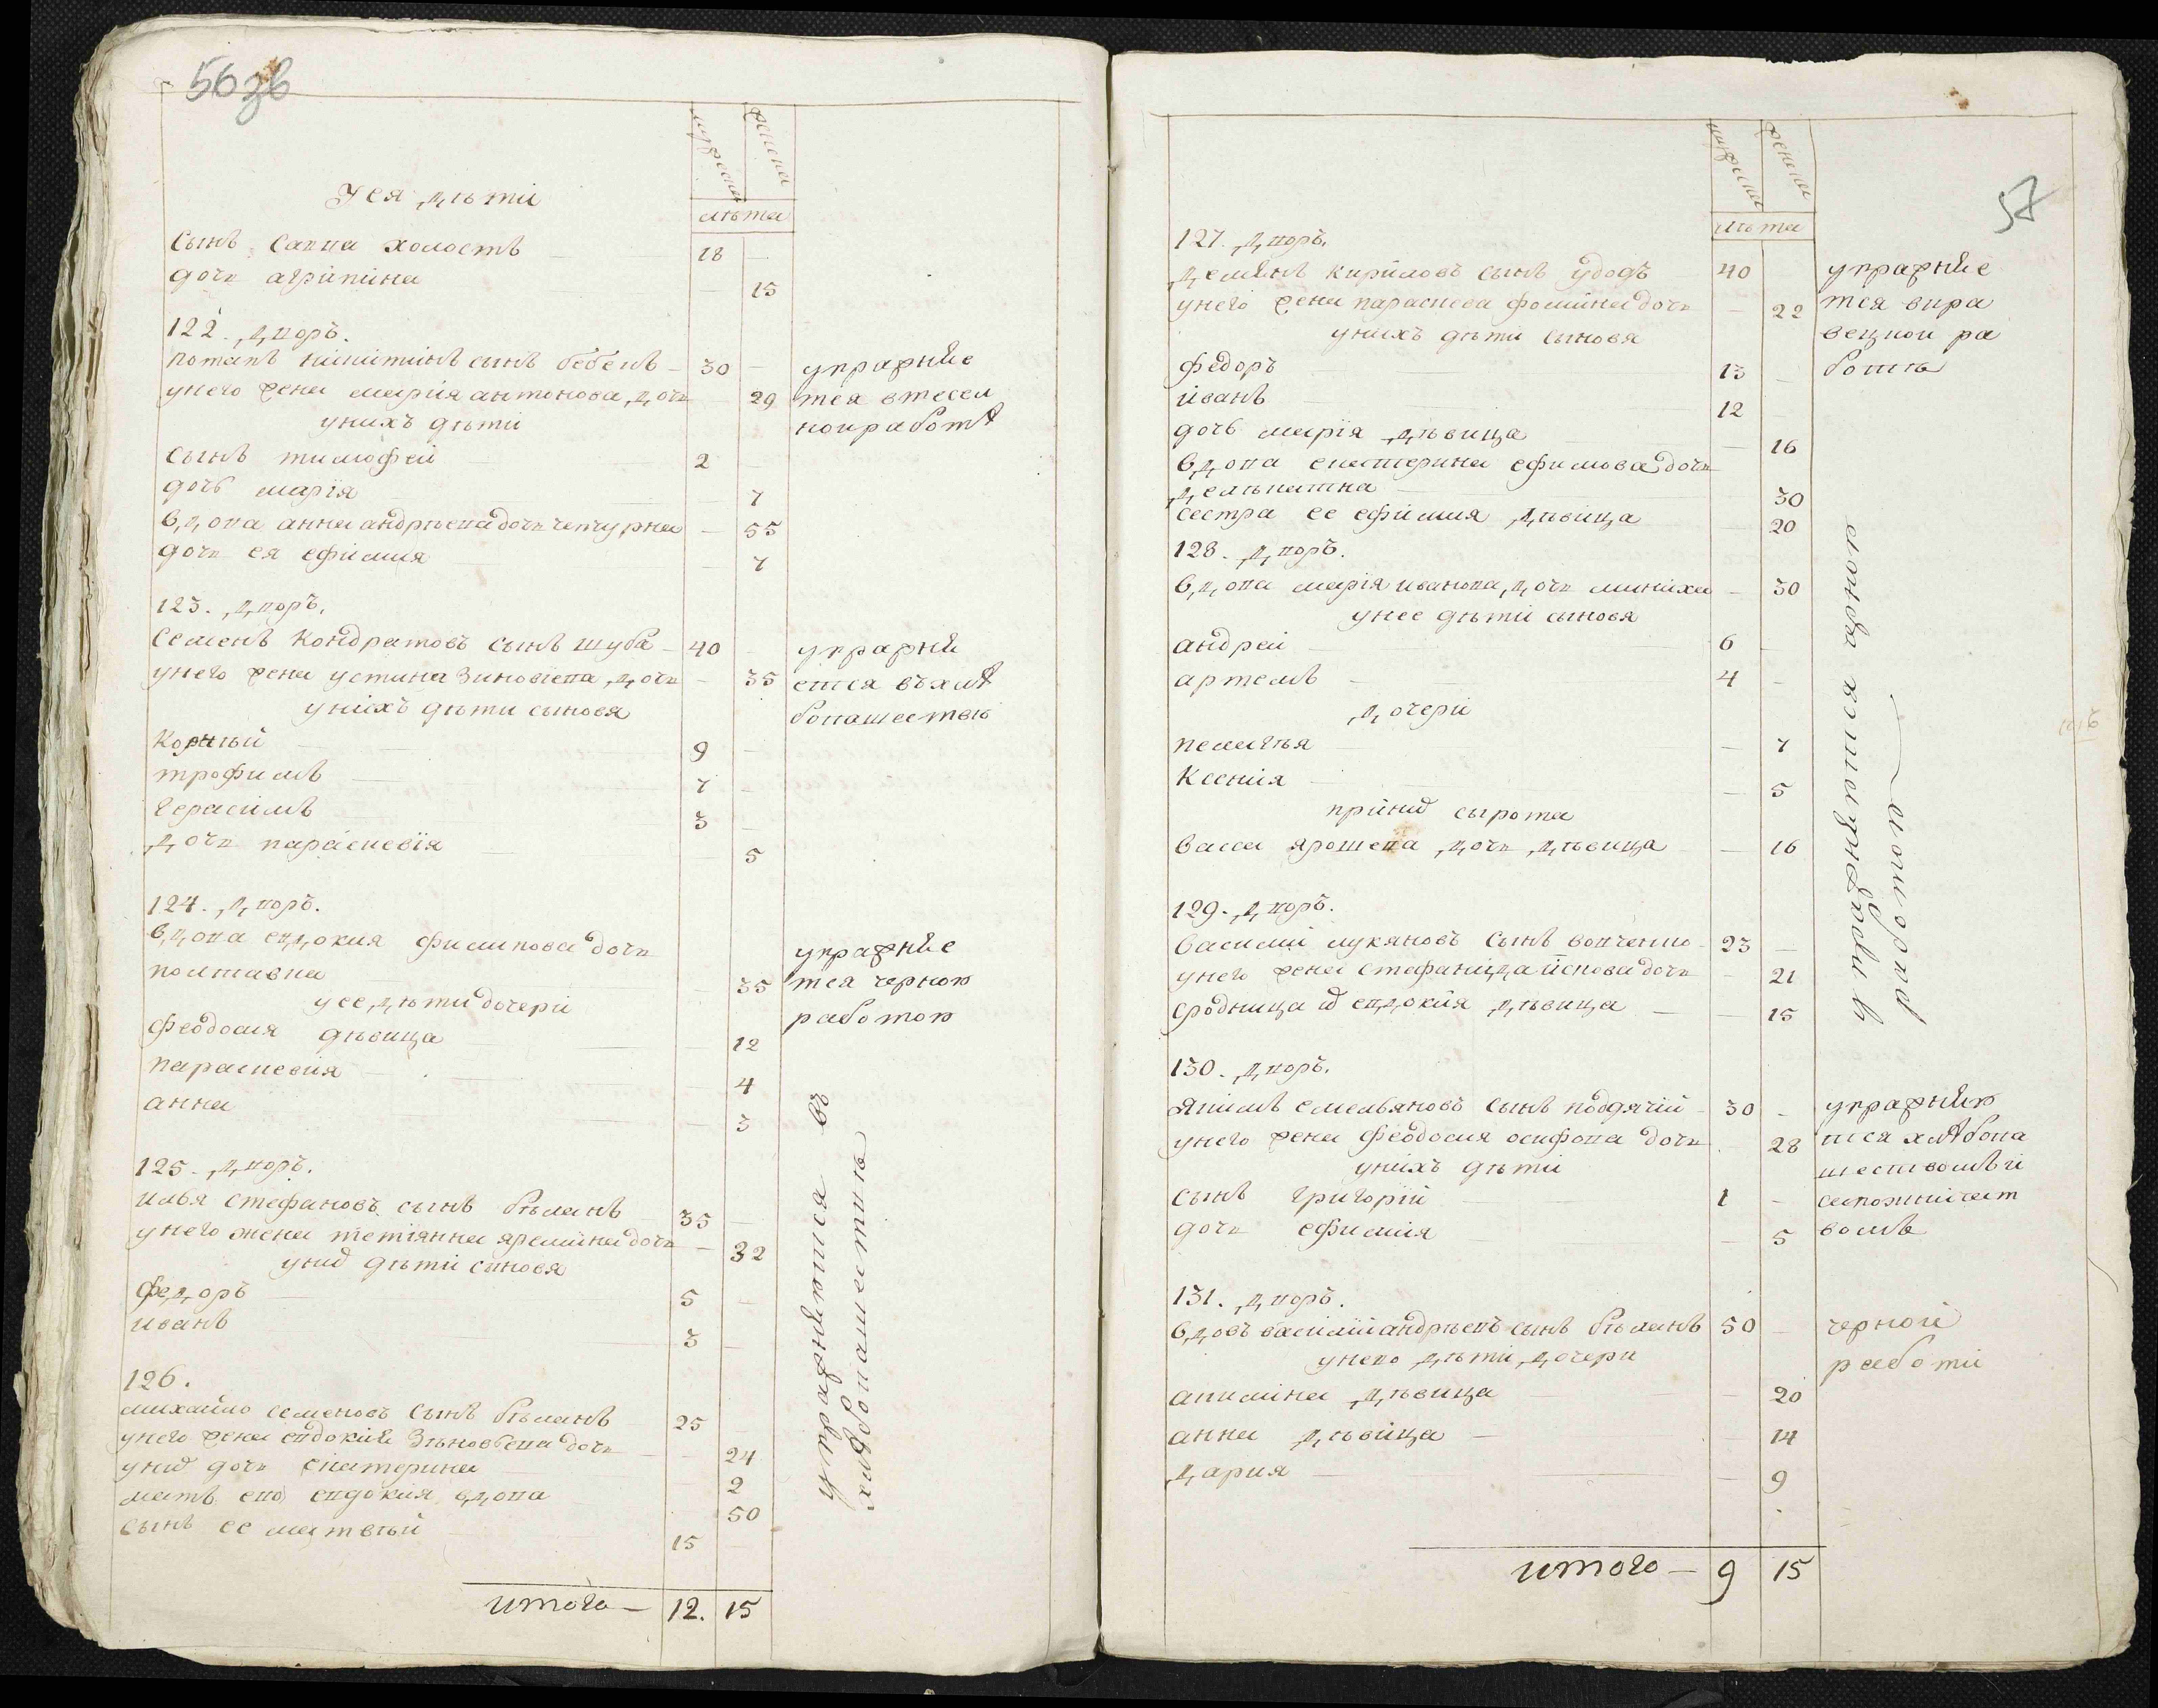 56зв
мужеска
женска
лѣта
Уея дѣти
сынъ Савва холостъ 18
дочь агрипина 15
122. дворъ.
потапъ никитинъ сынъ бебенъ 30
упражняе
унего жена мария антонова дочь 29
тся втесел
унихъ дѣти
ной работѣ
сынъ тимофей 2
дочь марїя 7
вдова анна андрѣева дочь чепурна 55
дочь ея ефимия 7
123. дворъ.
семенъ кондратовъ сынъ шуба 40
упражня
унего жена устина зиновієва дочь 35
ется въ хлѣ
унихъ дѣти сыновя
бопашествѣ
корнѣй 9
трофимъ 7
герасимъ 3
дочь параскевїя 5
124. дворъ.
вдова евдокия филипова дочь
упражняе
полтавка 35
тся черною
уее дѣти дочери
работою
феодосия дѣвица 12
параскевия 4
анна 3
125. дворъ.
илья стефановъ сынъ бѣланъ 35
унего жена тетіянна яремина дочь 32
унихъ дѣти синовя
федоръ 5
иванъ 3
126.
михайло семеновъ сынъ бѣланъ 25
унего жена евдокия зѣновьева дочь 24
унихъ дочь екатерина 2
мать его евдокия вдова 50
сынъ ее матвѣй 15
упражняются въ
хлѣбопашествѣ
итого 12. 15
57
мужеска
женска
лѣта
127. дворъ.
демянъ кириловъ сынъ удодъ 40
упражняе
унего жена параскева фомина дочь 22
тся вкра
унихъ дѣти сыновя
вецкой ра
федоръ 13
ботѣ
иванъ 12
дочь марїя дѣвица 16
вдова екатерина ефимова дочь
30
сестра ее ефимия дѣвица 20
128. дворъ.
вдова марія иванова дочь миниха 30
унее дѣти сыновя
андрей 6
артемъ 4
дочери
пелагѣя 7
ксения 5
прїнихъ сырота
васса ярошева дочь дѣвица 16
129. дворъ.
василий лукяновъ сынъ вовченко 23
унего жена стефанида яковова дочь 21
сродница их евдокия дѣвица 15
упражняются черною
работою
130. дворъ.
якимъ емельяновъ сынъ поддячій 30
упражняю
унего жена феодосия осифова дочь 28
тся хлѣбопа
унихъ дѣти
шествомъ и
сынъ григорій 1
сапожничест
дочь ефимия 5
вомъ
131. дворъ.
вдовъ василій андрѣевъ сынъ бѣланъ 50
черной
унего дѣти дочери
работи
акилина дѣвица 20
анна дѣвица 14
дария 9
итого 9 15